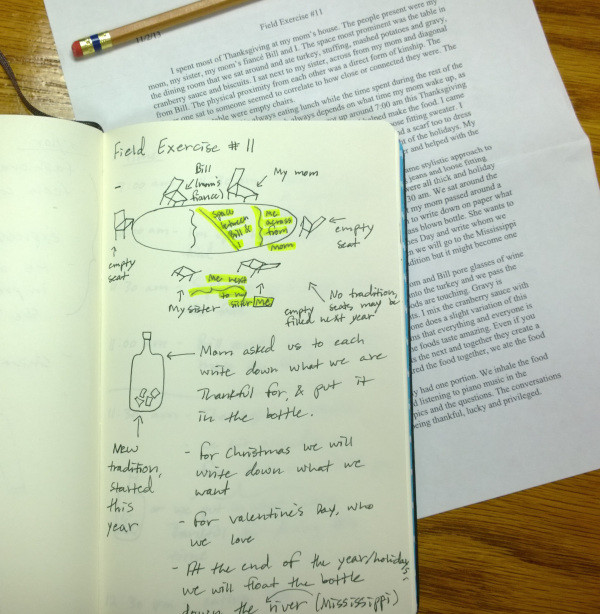 Field Exercise #11
11/2/13
I spent most of Thanksgiving at my mom's house. The people present were my
mom, my sister, my mom's fiancé Bill and I. The space most prominent was the table in
the dining room that we sat around and ate turkey, stuffing, mashed potatoes and gravy,
cranberry sauce and biscuits. I sat next to my sister, across from my mom and diagonal
from Bill. The physical proximity from each other was a direct form of kinship. The
one sat to someone seemed to correlate to how close or connected they were. The
ble were empty chairs.
always eating lunch while the time spent during the rest of the
always depends on what time my mom wake up, as
up around 7:00 am this Thanksgiving
made the food. I came
ose fitting sweater. I
d a scarf too to dress
t of the holidays. My
r and helped with the
ame stylistic approach to
jeans and loose fitting
were all thick and holiday
30 am. We sat around the
t my mom passed around a
to write down on paper what
ass blown bottle. She wants to
es Day and write whom we
n we will go to the Mississippi
dition but it might become one
om and Bill pore glasses of wine
nto the turkey and we pass the
oods are touching. Gravy is
ts. I mix the cranberry sauce with
one does a slight variation of this
ns that everything and everyone is
e foods taste amazing. Even if you
s the next and together they create a
red the food together, we ate the food
y had one portion. We inhale the food
d listening to piano music in the
pics and the questions. The conversations
eing thankful, lucky and privileged.
Field Exercise #11
Bill
(mom's
fiancé)
My mom
space
between
Bill &
I
me
across
from
mom
empty
seat
empty
seat
me next
to my
sister
My sister
me
No tradition,
empty seats may be
filled next year
Mom asked us to each
write down what we are
Thankful for, & put it
in the bottle.
New
tradition,
started
this
year
- for Christmas we will
write down what we
want
- for valentine's Day, who
we love
- At the end of the year/holidays
we will float the bottle
down the river (Mississippi)